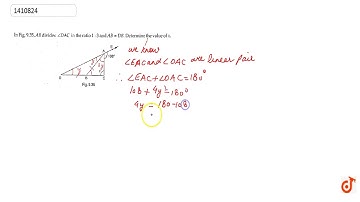 1410824
In Fig. 9.35, AB divides ∠DAC in the ratio 1 : 3 and AB = DB. Determine the value of x.
108°
Fig. 9.35
we know
∠EAC and ∠DAC are linear pair
∴ ∠EAC + ∠DAC = 180°
108 + 4y = 180°
4y = 180 - 108